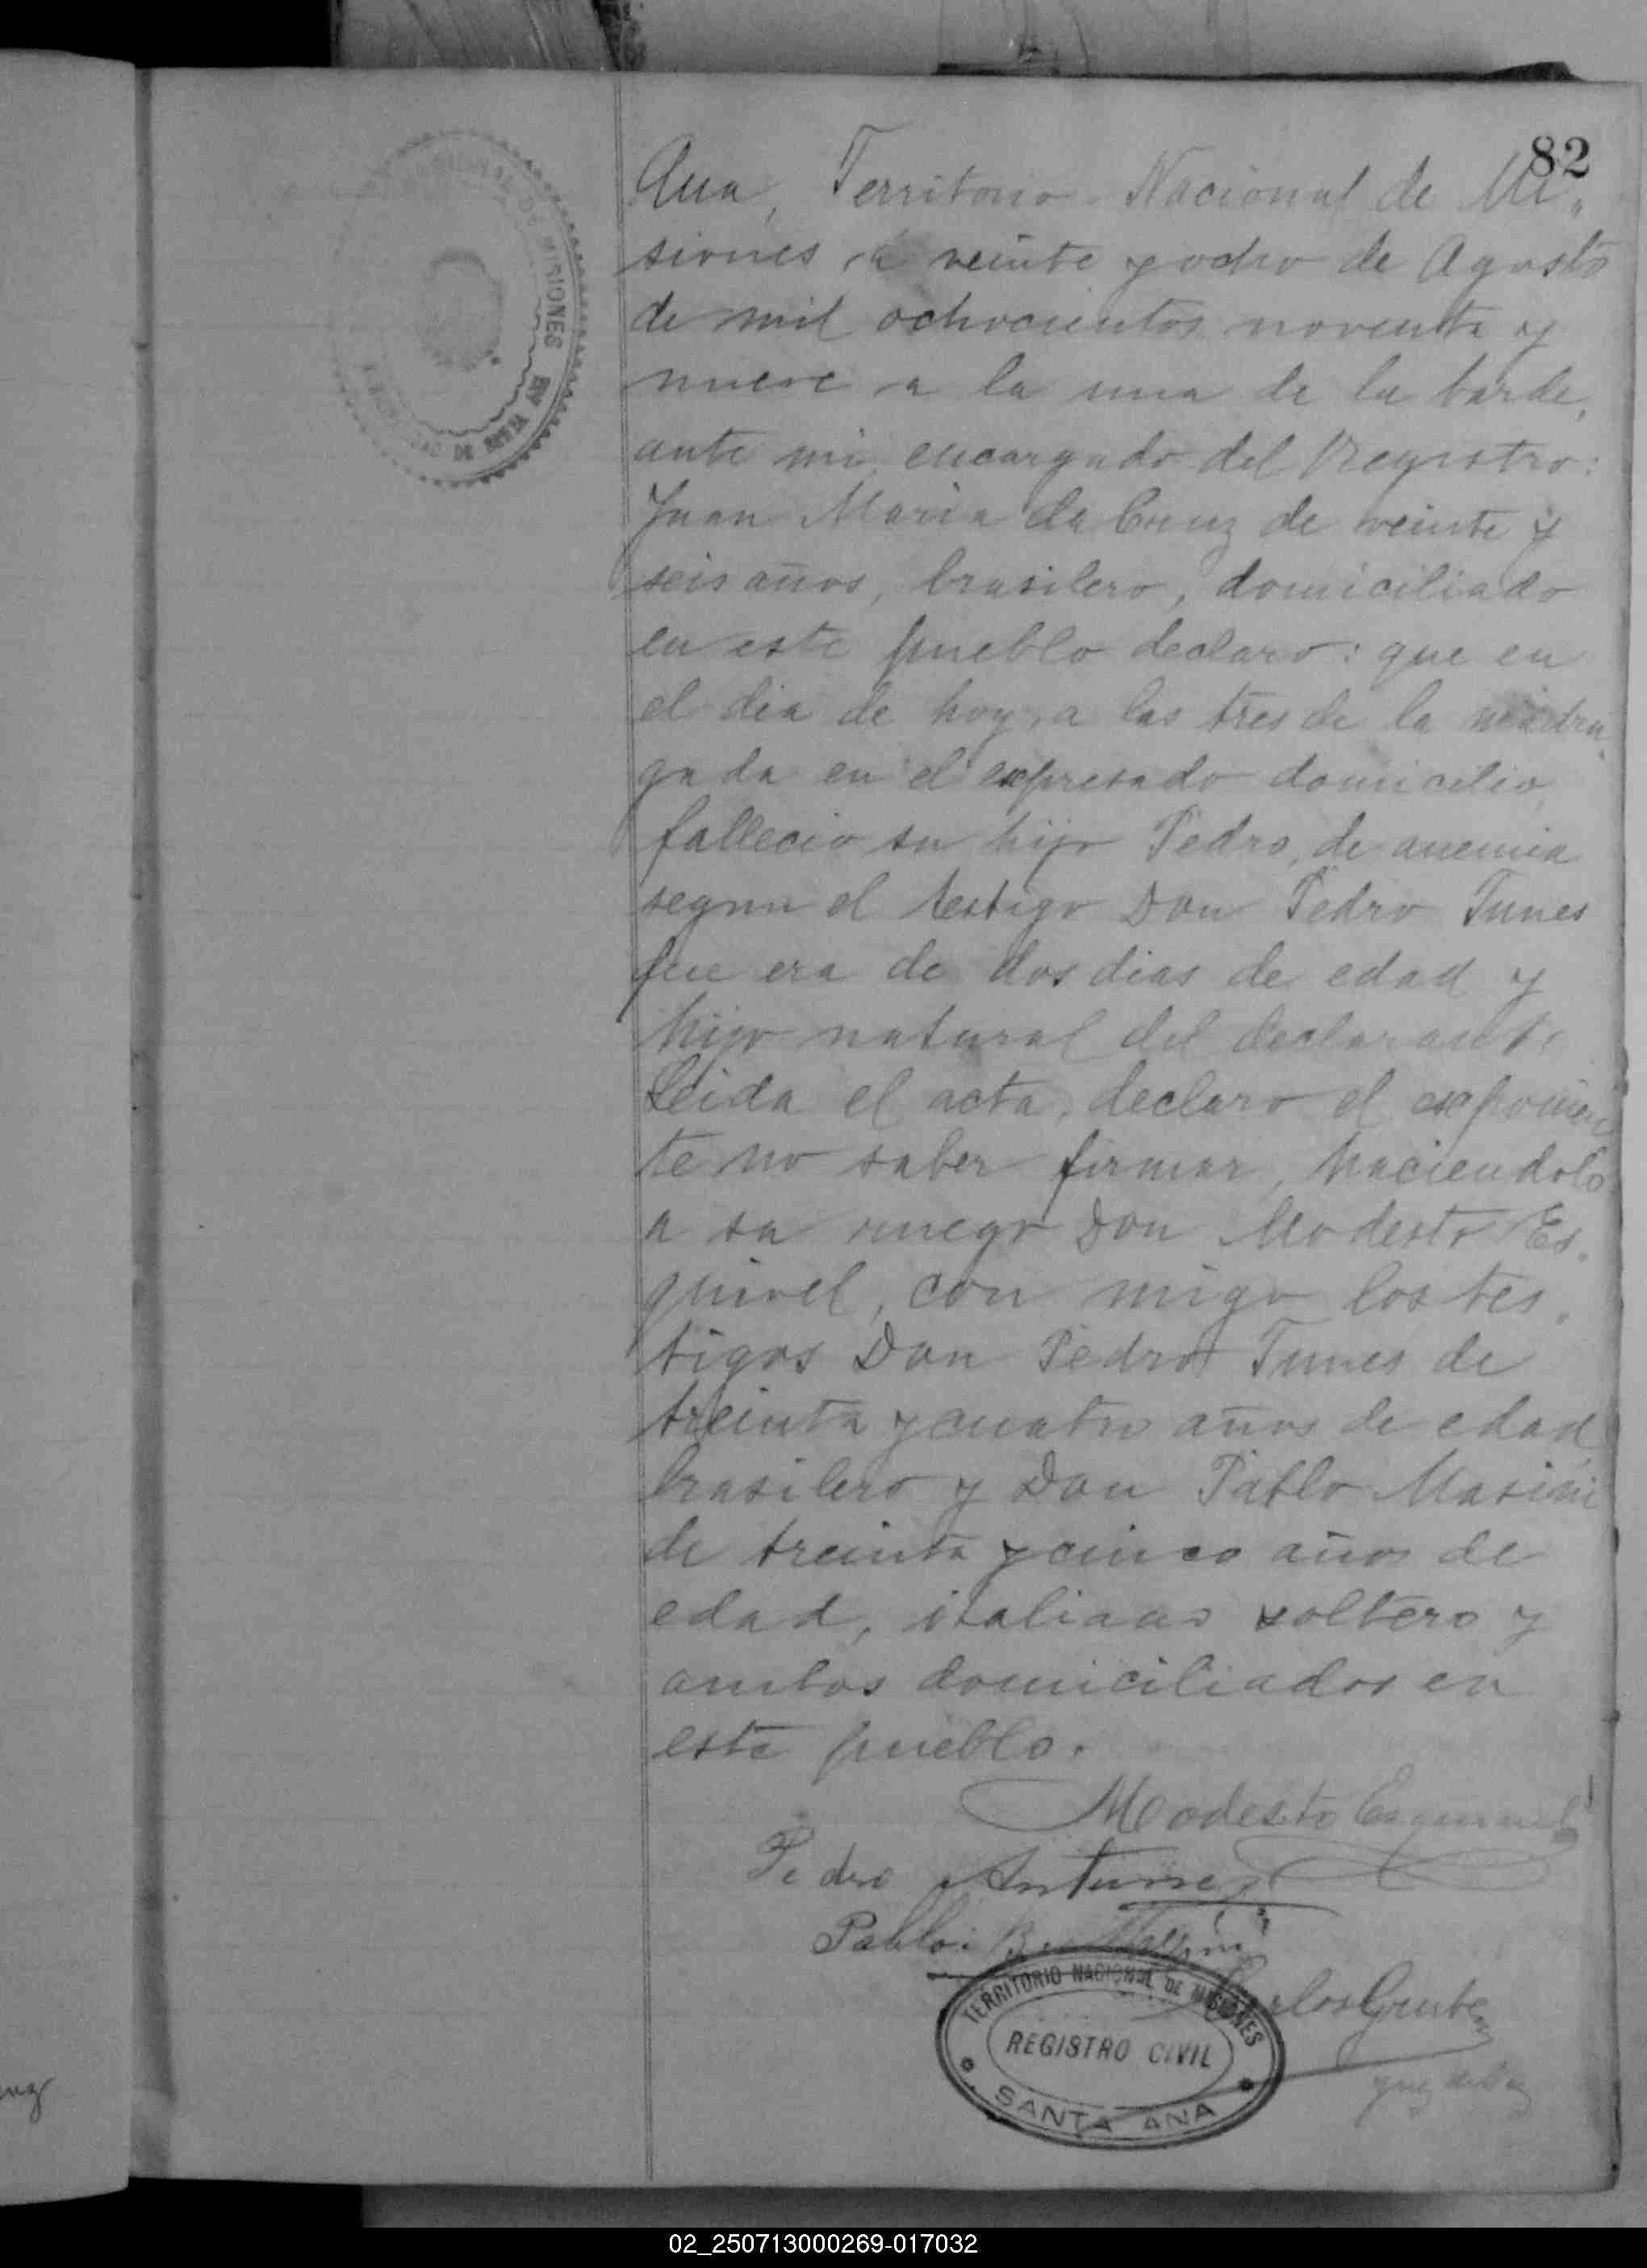 82
Ana, Territorio Nacional de Mi„
siones a veinte y ocho de Agosto
de mil ochocientos noventa y
nueve a la una de la tarde,
ante mi, encargado del Registro:
Juan Maria da Cruz de veinte y
seis años, brasilero, domiciliado
en este pueblo declaro: que en
el dia de hoy, a las tres de la madru„
gada en el expresado domicilio,
fallecio su hijo Pedro, de anemia
segun el testigo Don Pedro Tunes
que era de dos dias de edad y
hijo natural del declarante
Leida el acta, declaro el exponen
te no saber firmar, haciendolo
a su ruego Don Modesto Es„
quivel, con migo los tes„
tigos Don Pedro Tunes de
treinta y cuatro años de edad
brasilero y Don Pablo Masini
de treinta y cinco años de
edad, italiano soltero y
ambos domiciliados en
este pueblo.
Modesto Esquivel
Pedro Antunez
Pablo B. Massini
Carlos
TERRITORIO NACIONAL DE MISIONES
REGISTRO CIVIL
SANTA ANA
DE MISIONES
DE
02_250713000269-017032